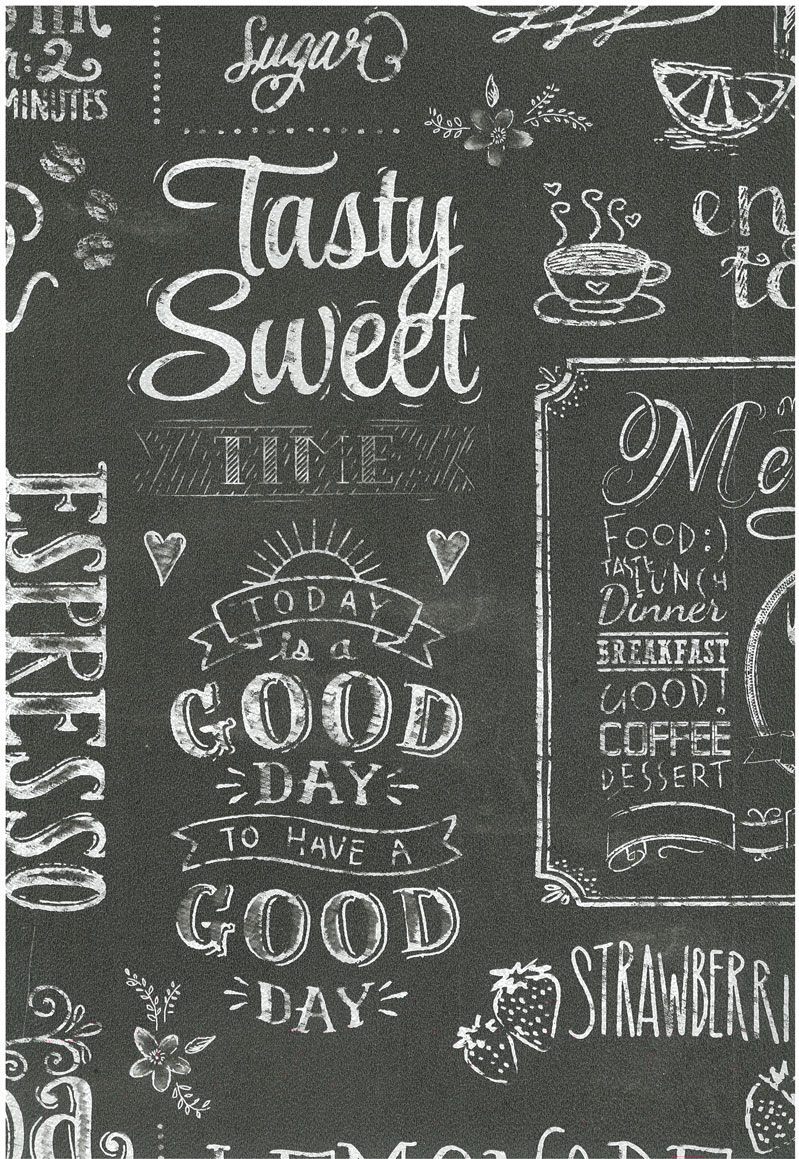 2
MINUTES
Sugar
Tasty
Sweet
TIME
en
to
ESPRESSO
TODAY
is a
GOOD
DAY
TO HAVE A
GOOD
DAY
Me
FOOD:)
TASTE
LUNCH
Dinner
BREAKFAST
GOOD!
COFFEE
DESSERT
STRAWBERRI
LEMONADE